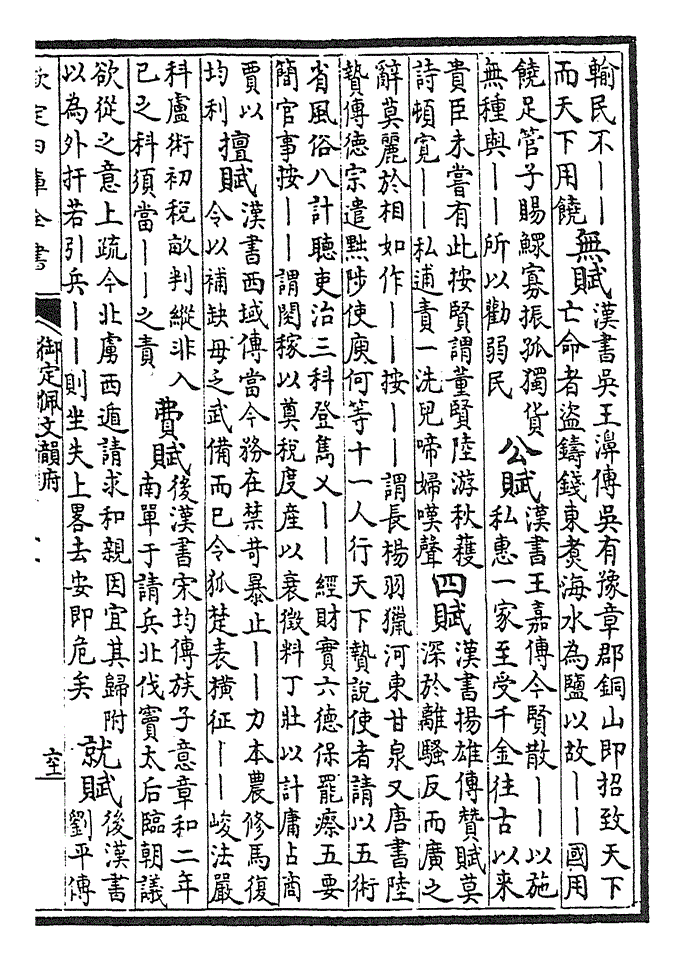 輸民不――
而天下用饒
無賦
漢書吳王濞傳吳有豫章郡銅山即招致天下
亡命者盜鑄錢東煮海水為鹽以故――國用
饒足管子賜鰥寡振孤獨貨
無種與――所以勸弱民
公賦
漢書王嘉傳今賢散――以施
私惠一家至受千金往古以來
貴臣未嘗有此按賢謂董賢陸游秋穫
詩頓寛――私逋責一洗兒啼婦嘆聲
四賦
漢書揚雄傳贊賦莫
深於離騷反而廣之
辭莫麗於相如作――按――謂長楊羽獵河東甘泉又唐書陸
贄傳德宗遣黜陟使庾何等十一人行天下贄說使者請以五術
省風俗八計聽吏治三科登雋乂――經財實六德保罷瘵五要
簡官事按――謂閱稼以奠稅度產以衰徵料丁壯以計庸占商
賈以
均利
擅賦
漢書西域傳當今務在禁苛暴止――力本農修馬復
令以補缺毋乏武備而已令狐楚表橫征――峻法嚴
科盧術初稅畝判縱非入
己之科須當――之責
費賦
後漢書宋均傳族子意章和二年
南單于請兵北伐竇太后臨朝議
欲從之意上疏今北虜西遁請求和親因宜其歸附
以為外扞若引兵――則坐失上畧去安即危矣
就賦
後漢書
劉平傳
欽定四庫全書
御定佩文韻府